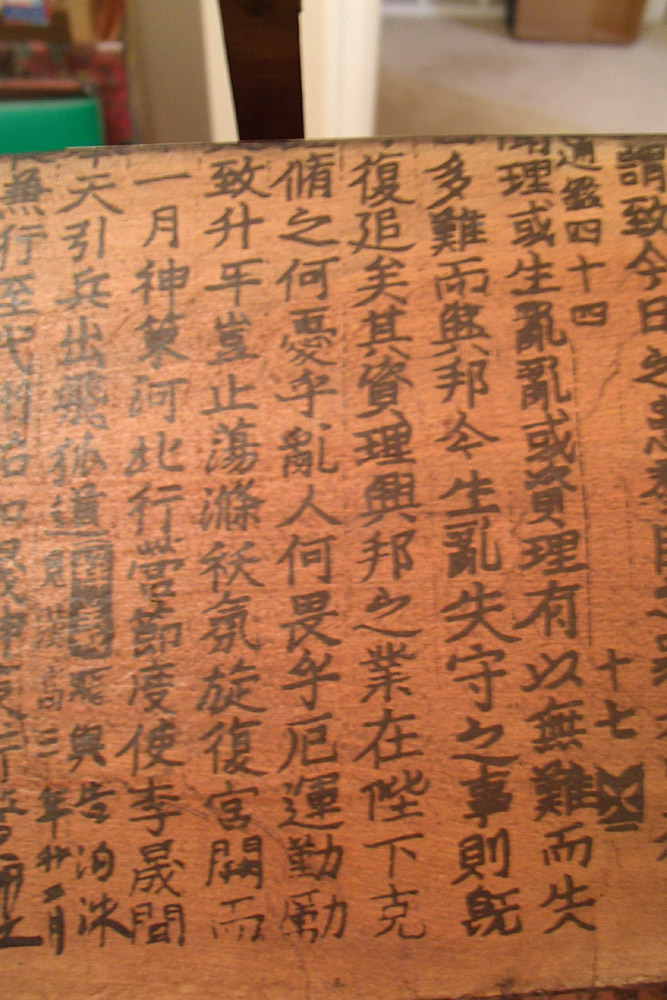 謂致今日之患
通鑑四十四 十七
理或生亂亂或資理有以無難而失
多難而興邦今生亂失守之事則既
復追矣其資理興邦之業在陛下克
脩之何憂乎亂人何畏乎厄運勤勵
致升平豈止蕩滌祅氛旋復宮闕而
一月神策河北行營節度使李晟聞
天引兵出飛狐道 見漢高三年 與告洺洙
兼行至代